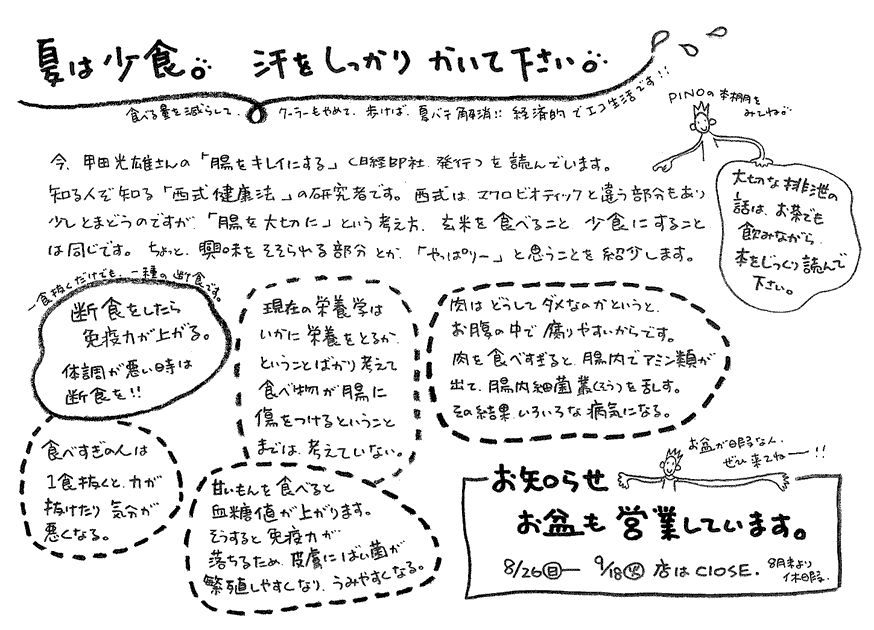 夏は少食。 汗をしっかり かいて下さい。
食べる量を減らして、クーラーもやめて、歩けば、夏バテ解消!! 経済的でエコ生活です!!
PINOの本棚を
みてね。
今、甲田光雄さんの「腸をキレイにする」(日経印社 発行)を読んでいます。
知る人ぞ知る「西式健康法」の研究者です。西式は、マクロビオティックと違う部分もあり
少しとまどうのですが、「腸を大切に」という考え方、玄米を食べること、少食にすること
は同じです。ちょっと、興味をそそられる部分とか、「やっぱりー」と思うことを紹介します。
大切な排泄の
話は、お茶でも
飲みながら、
本をじっくり読んで
下さい。
一食抜くだけでも、一種の断食です。
断食をしたら
免疫力が上がる。
体調が悪い時は
断食を!!
現在の栄養学は
いかに栄養をとるか、
ということばかり考えて
食べ物が腸に
傷をつけるということ
までは、考えていない。
肉はどうしてダメなのかというと、
お腹の中で腐りやすいからです。
肉を食べすぎると、腸内でアミン類が
出て、腸内細菌叢(そう)を乱す。
その結果、いろいろな病気になる。
食べすぎの人は
1食抜くと、力が
抜けたり 気分が
悪くなる。
甘いもんを食べると
血糖値が上がります。
そうすると免疫力が
落ちるため、皮膚にばい菌が
繁殖しやすくなり、うみやすくなる。
お盆が日暇な人、
ぜひ来てねー!!
お知らせ
お盆も営業しています。
8/26㊐― 9/18㊋ 店はCLOSE.
8月末より
休暇。